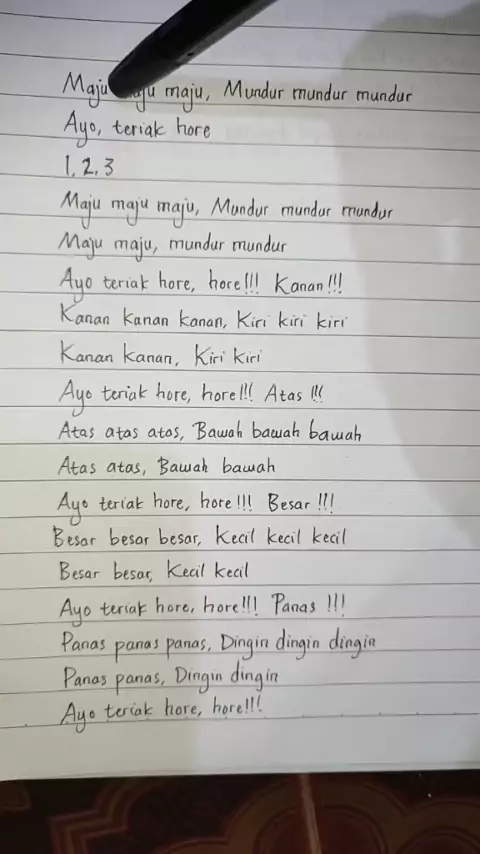 Maju maju maju, Mundur mundur mundur
Ayo, teriak hore
1, 2, 3
Maju maju maju, Mundur mundur mundur
Maju maju, mundur mundur
Ayo teriak hore, hore!!! Kanan!!!
Kanan kanan kanan, Kiri kiri kiri
Kanan kanan, Kiri kiri
Ayo teriak hore, hore!!! Atas !!!
Atas atas atas, Bawah bawah bawah
Atas atas, Bawah bawah
Ayo teriak hore, hore!!! Besar !!!
Besar besar besar, Kecil kecil kecil
Besar besar, Kecil kecil
Ayo teriak hore, hore!!! Panas !!!
Panas panas panas, Dingin dingin dingin
Panas panas, Dingin dingin
Ayo teriak hore, hore!!!